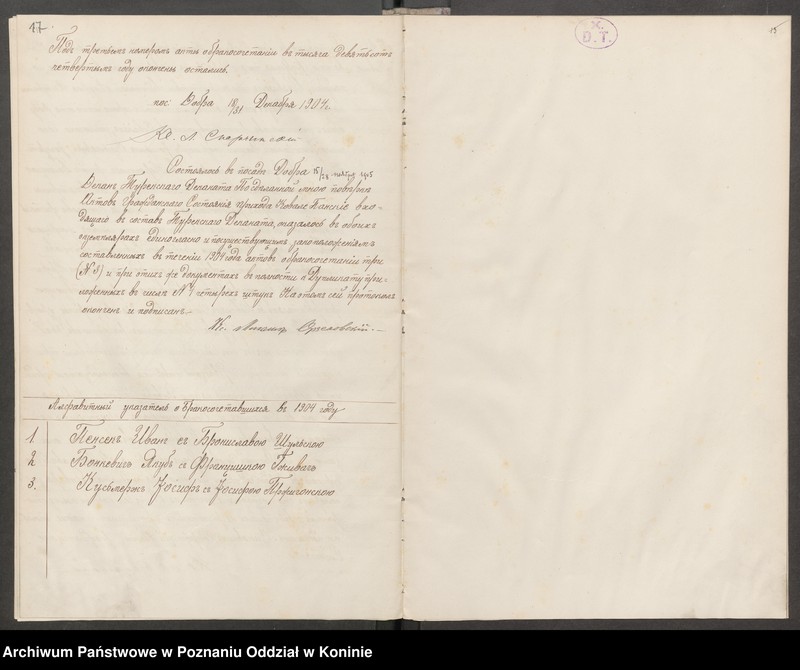 17.
Подъ третьемъ номеромъ акты о бракосочетаніи въ тысяча девятьсотъ
четвертымъ году окончены остались.
пос. Добра 18/31 Декабря 1904 г.
Кс. Л.
Состоялось въ посадѣ Добра 15/28 1905
Деканъ Турекскаго Деканата Подѣланной мною повѣрка
Актовъ Гражданскаго Состоянія прихода Ковале Панскіе вхо-
дящаго въ составъ Турекскаго Деканата, оказалось въ обоихъ
экземплярахъ единогласно и по существующимъ законоположеніямъ
составленныхъ въ теченіи 1904 года актовъ о бракосочетаніи три
(№ 3) и при этихъ же документахъ въ полности къ Дупликату при-
ложенныхъ въ числѣ № 4 четырехъ штукъ На этомъ сей протоколъ
оконченъ и подписанъ.—
Кс.
Алфавитный указатель о бракосочетавшихся въ 1904 году
1 Пенсекъ Иванъ съ Брониславою Шульскою
2 Якубъ съ Францишкою
3. Іосифъ съ Іосифою
X.
D.T.
15
Archiwum Państwowe w Poznaniu Oddział w Koninie